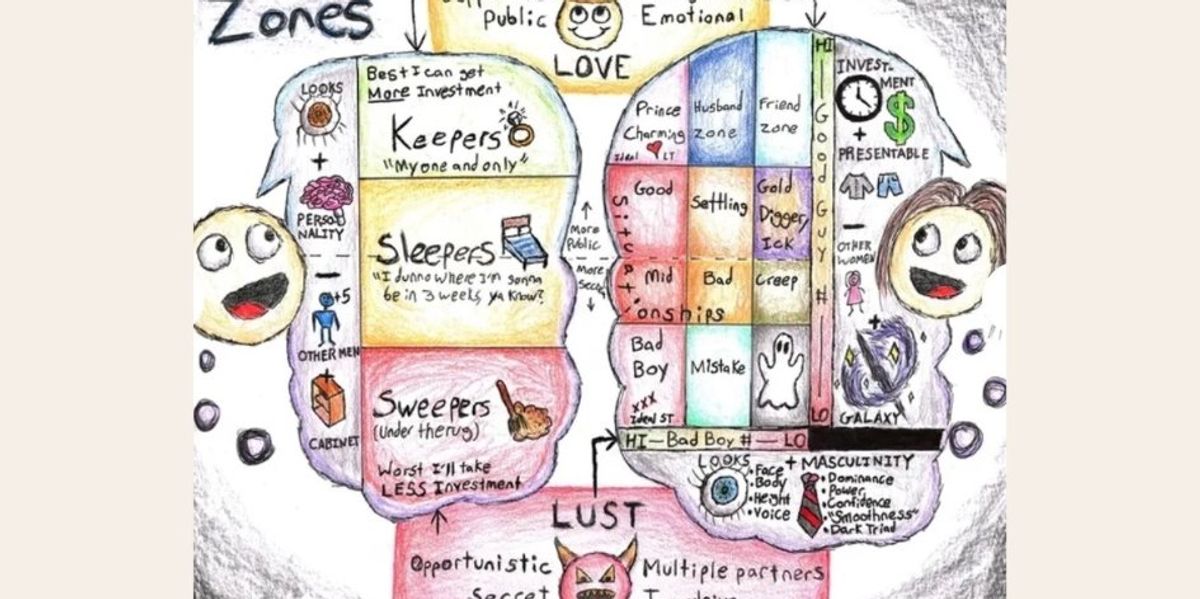 Zones
Public
Emotional
LOVE
LOOKS
+
PERSO
NALITY
-
+5
OTHER MEN
+
CABINET
Best I can get
More Investment
Keepers
"My one and only"
Sleepers
"I dunno where I'm gonna
be in 3 weeks, ya know?
Sweepers
(Under the rug)
Worst I'll take
LESS Investment
↑
More
Public
More
↓
Prince
Charming
Ideal LT
Husband
zone
Friend
zone
Good
Settling
Gold
Digger/
Ick
Mid
Bad
Creep
Situationships
Bad
Boy
XXX
Ideal ST
Mistake
HI
Good Guy #
LO
HI-Bad Boy #-LO
INVEST-
MENT
$
+
PRESENTABLE
-
OTHER
WOMEN
+
GALAXY
LOOKS
• Face
• Body
• Height
• Voice
+ MASCULINITY
• Dominance
• Power
• Confidence
• "Smoothness"
• Dark Triad
LUST
Opportunistic
Secret
Multiple partners